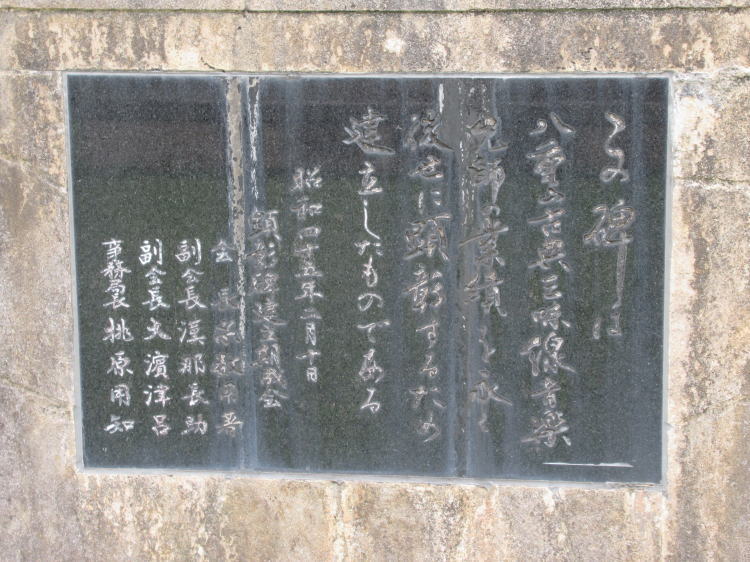 この碑は
八重山古典三味線音楽
先師の業績を永く
後世に顕彰するため
建立したものである
昭和四十五年二月十日
顕彰碑建立期成会
会長
副会長 漢那長助
副会長 大濱津呂
事務局長 桃原用知